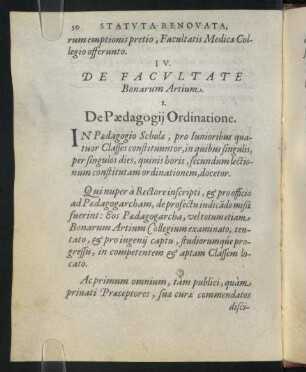 50 STATVTA RENOVATA,
rum emptionis pretio, Facultatis Medicæ Col-
legio offerunto.
IV.
DE FACVLTATE
Bonarum Artium.
I.
De Pædagogij Ordinatione.
IN Pædagogio Scholæ, pro Iunioribus qua-
tuor Classes constituuntor, in quibus singulis,
per singulos dies, quinis horis, secundum lectio-
num constitutam ordinationem, docetor.
Qui nuper a Rectore inscripti, & pro officio
ad Pædagogarcham, de profectu iudicãdo missi
fuerint: Eos Pædagogarcha, vel totum etiam
Bonarum Artium Collegium examinato, ten-
tato, & pro ingenij captu, studiorumque pro-
gressu, in competentem & aptam Classem lo-
cato.
Ac primum omnium, tàm publici, quàm
privati Præceptores, suæ curæ commendatos
disci-